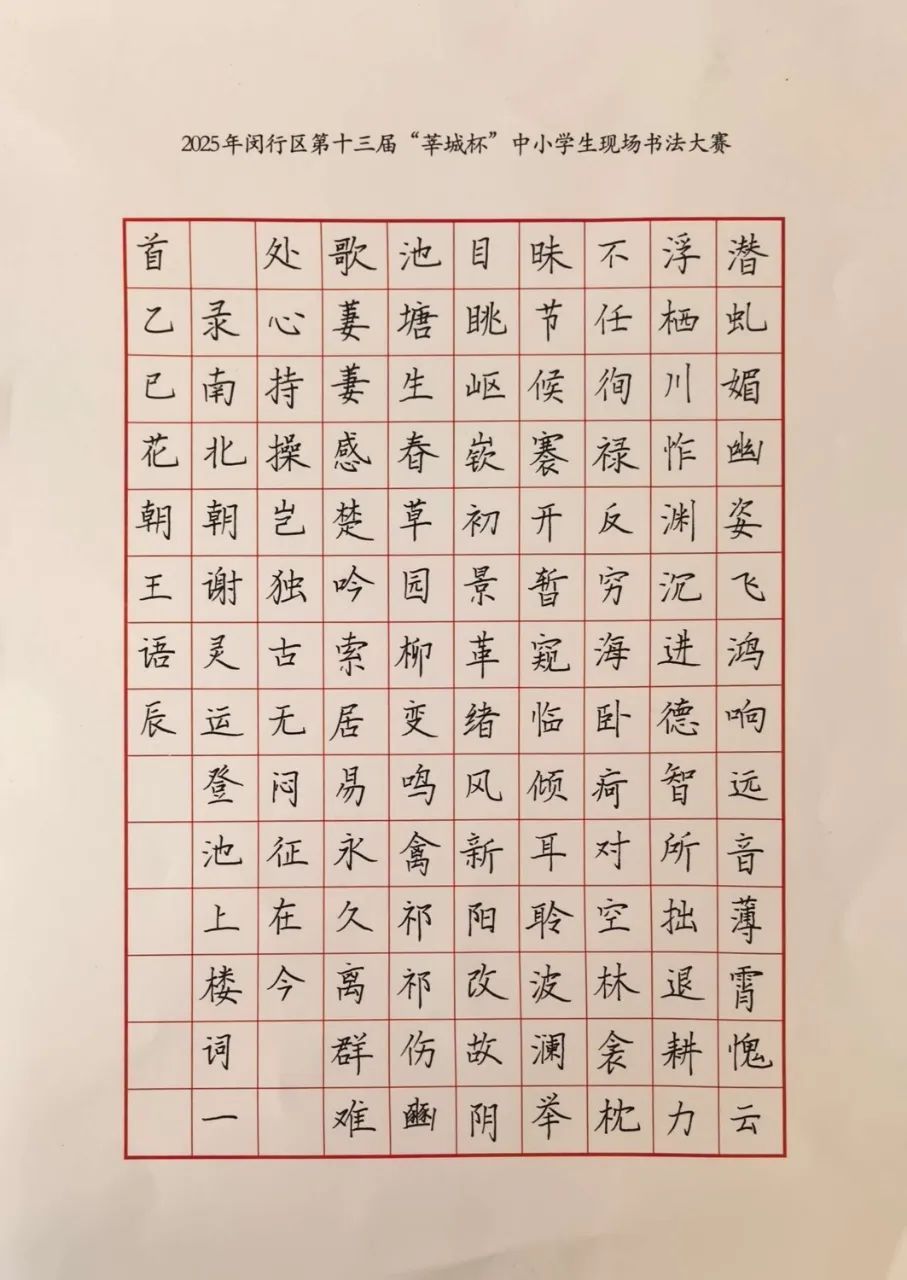 2025年闵行区第十三届“莘城杯”中小学生现场书法大赛
潜虬媚幽姿飞鸿响远音薄霄愧云
浮栖川怍渊沉进德智所拙退耕力
不任徇禄反穷海卧疴对空林衾枕
昧节候褰开暂窥临倾耳聆波澜举
目眺岖嵚初景革绪风新阳改故阴
池塘生春草园柳变鸣禽祁祁伤豳
歌萋萋感楚吟索居易永久离群难
处心持操岂独古无闷征在今
录南北朝谢灵运登池上楼词一
首乙巳花朝王语辰